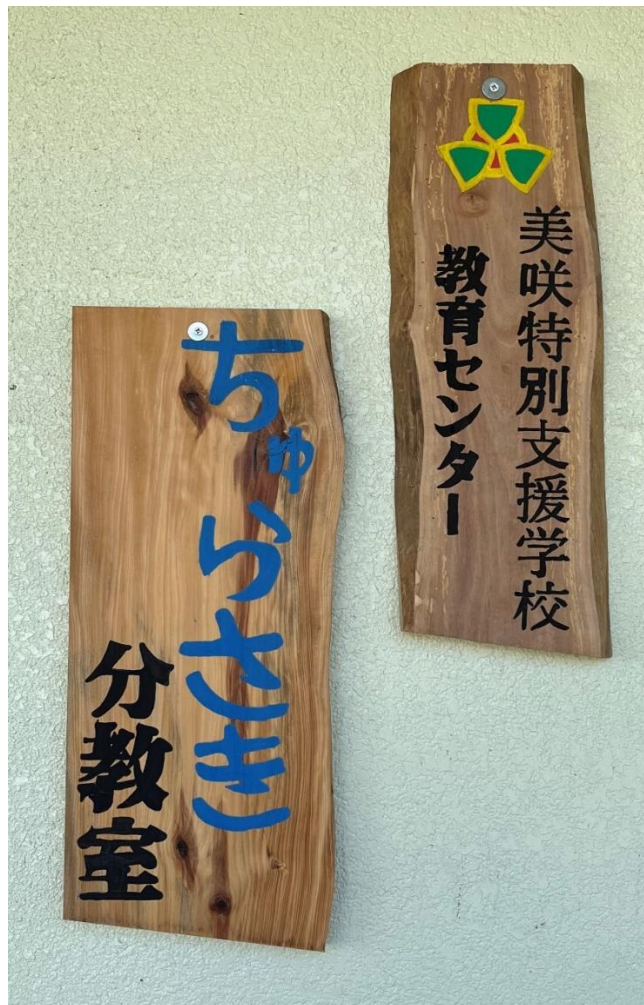 美咲特別支援学校
教育センター
ちゅらさき
分教室